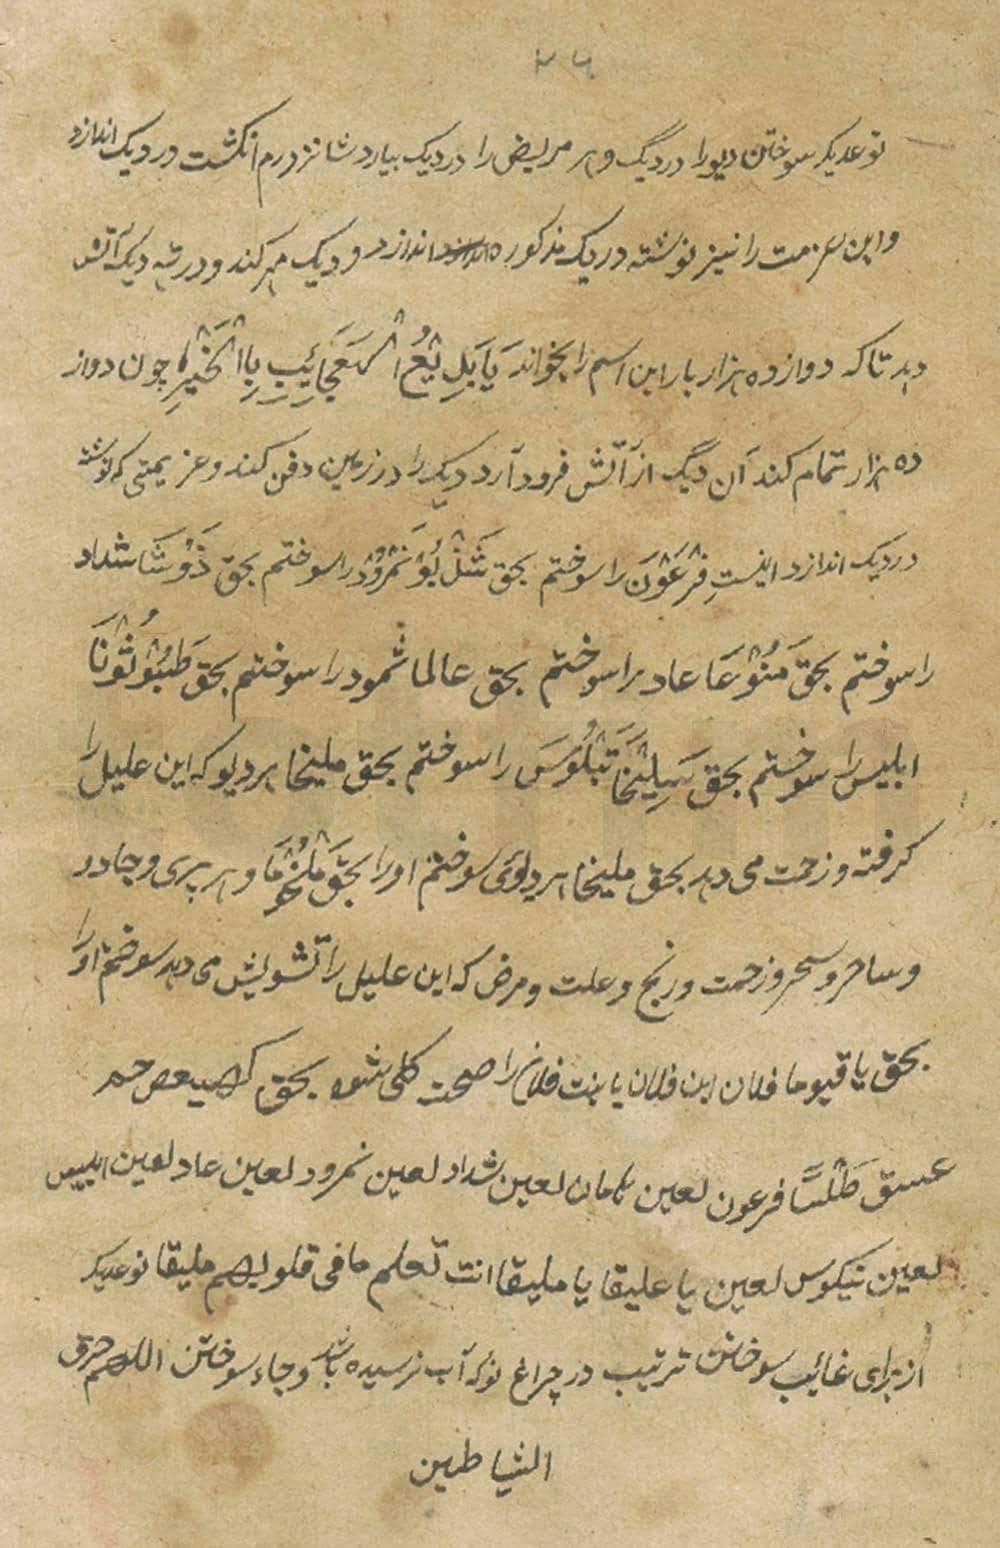 ۲۶
نوعدیکر سوختن دیو را در دیگ و هر مریض را در دیک بیارد شانزدرم انکشت در دیک اندازد
و این عزیمت را نیز نوشته در دیک مذکور اندازد و دیک مهر کند و در ته دیک آتش
دهد تا که دوازده هزار بار این اسم را بخواند یَا بَدِیْعُ الْعَجَائِبِ بِالْخَیْرِ چون دواز
ده هزار تمام کند آن دیگ از آتش فرود آرد دیک را در زمین دفن کند و عزیمتی که نوشته
در دیک اندازد اینست فِرْعَوْنَ را سوختم بحق نَمْرُوْدْ را سوختم بحق شداد
را سوختم بحق مَنُوْعَا عاد را سوختم بحق عالما ثمود را سوختم بحق طَبُوْثُوْنَا
ابلیس را سوختم بحق را سوختم بحق ملیخا هر دیو که این علیل را
کرفته و زحمت می دهد بحق ملیخا هر دیوی سوختم او را بحق و هر پری و جادو
و ساحر و سحر و زحمت و رنج و علت و مرض که این علیل را تشویش می دهد سوختم او را
بحق یا قیوما فلان ابن فلان یا بنت فلان را صحت کلی شود بحق کهیعص حم
عسق فرعون لعین هامان لعین شداد لعین نمرود لعین عاد لعین ابلیس
لعین لعین یا علیقا یا ملیقا انت تعلم ما فی قلوبهم ملیقا نوعدیکر
از برای غائب سوختن ترتیب در چراغ نو که آب نرسیده باشد و جاء سوختن اللهم حرق
الشیاطین